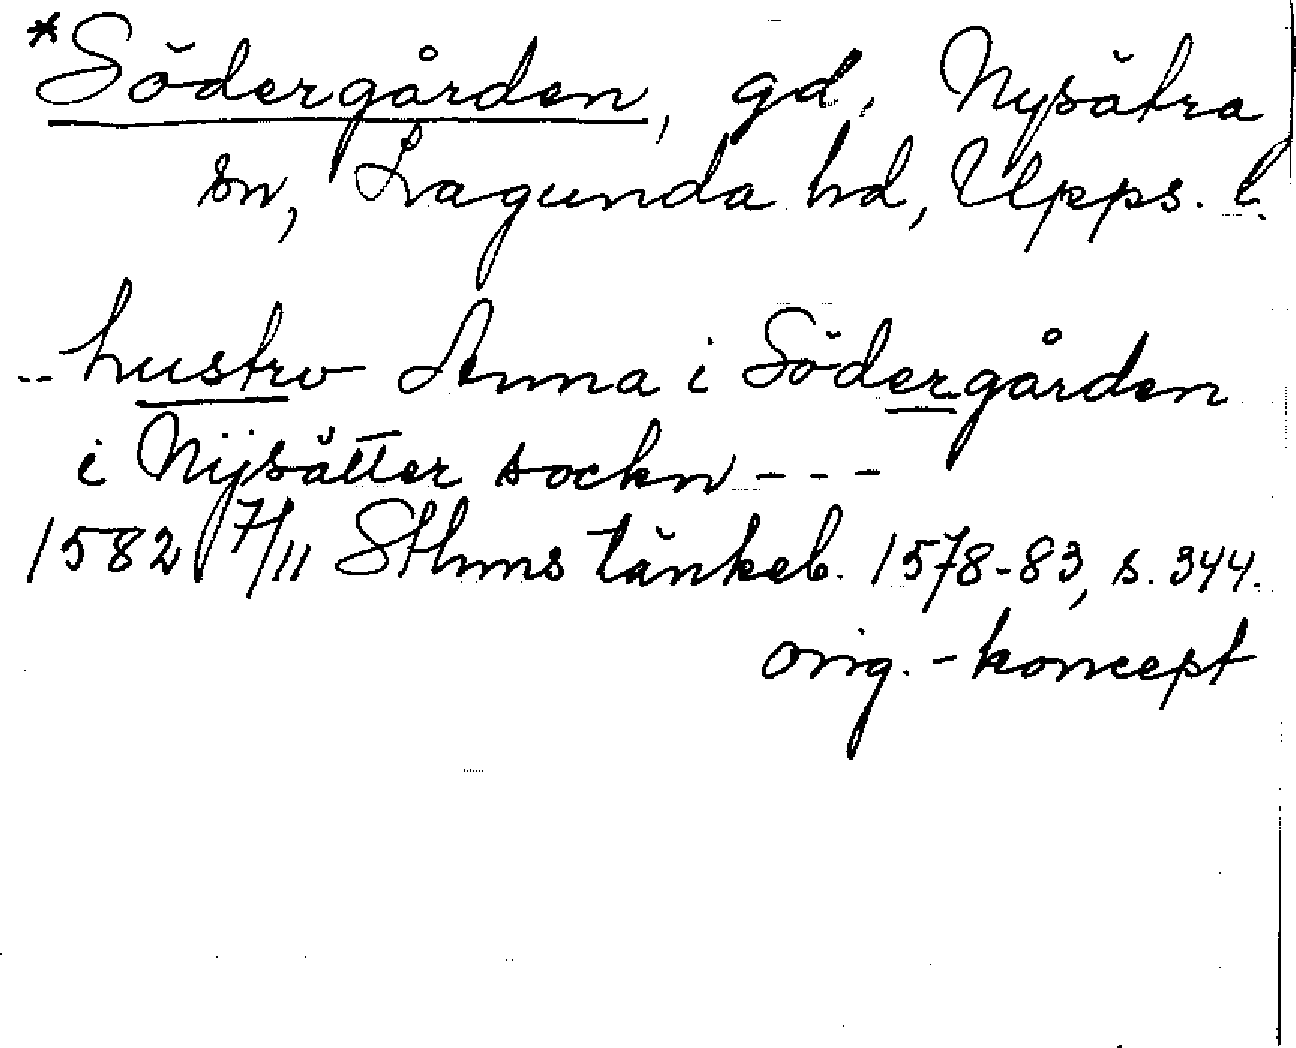 *Södergården, gd, Nysätra
sn, Lagunda hd, Upps. l.
-- hustro Anna i Södergården
i Nijsätter sockn - - -
1582 7/11 Sthms tänkeb. 1578-83, s. 344.
orig. - koncept